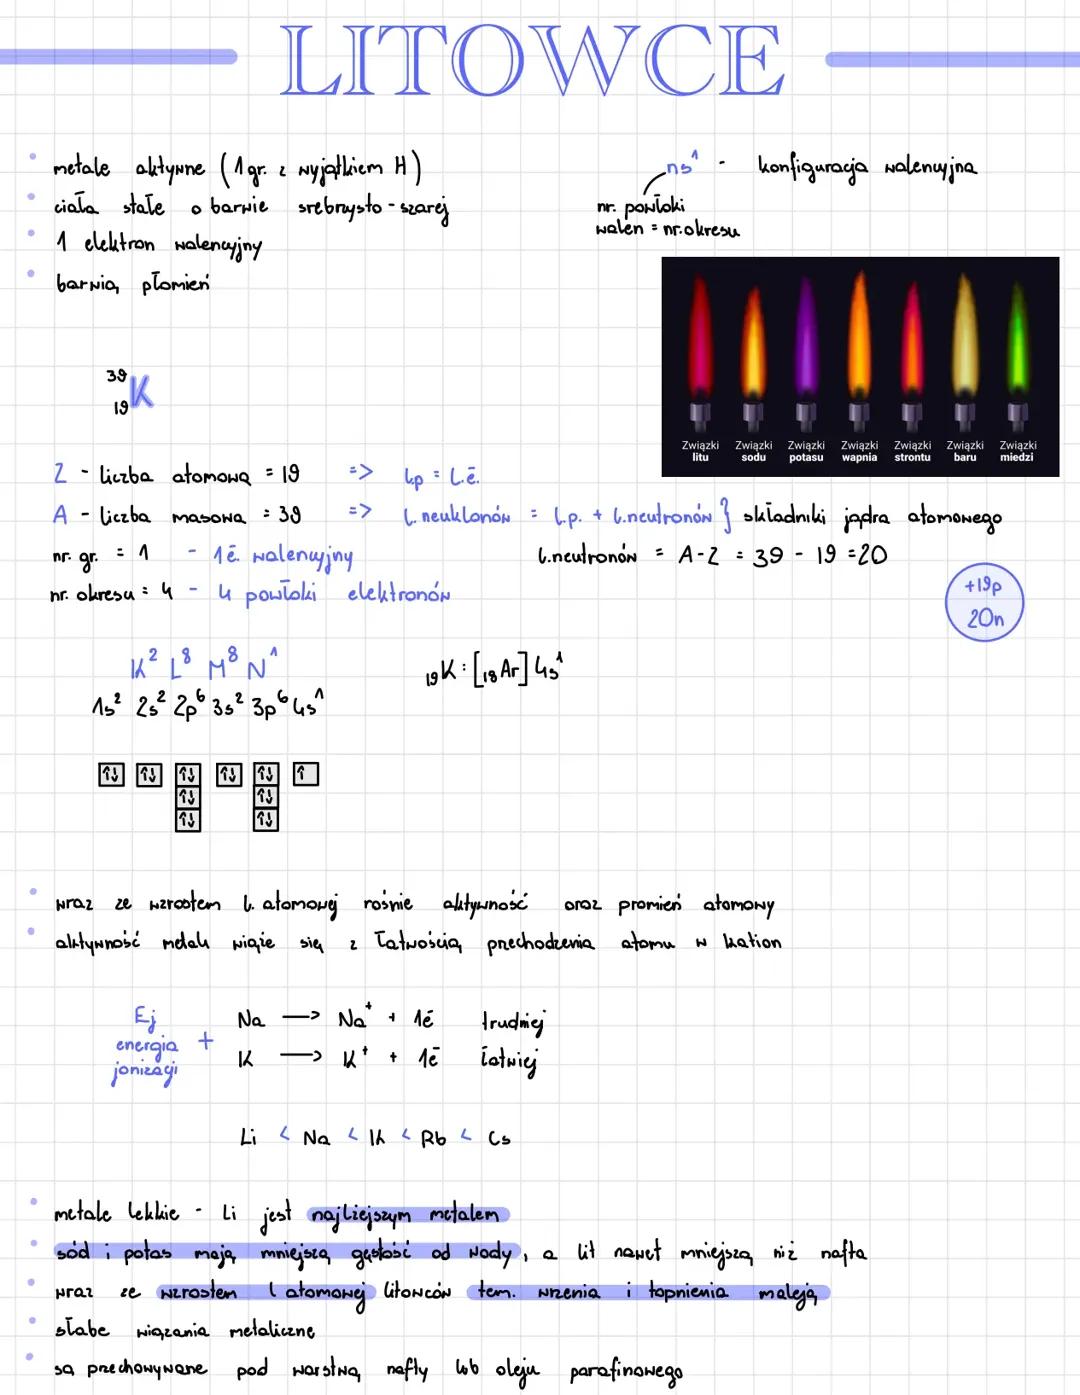 LITOWCE
metale aktywne (1gr. z wyjątkiem H)
ns¹ - konfiguracja walencyjna
ciała stałe o barwie srebrzysto-szarej
nr. powłoki
walen = nr.okresu
1 elektron walencyjny
barwią płomień
Związki litu
Związki sodu
Związki potasu
Związki wapnia
Związki strontu
Związki baru
Związki miedzi
39
19 K
Z - liczba atomowa = 19 => l.p = l.ē.
A - liczba masowa = 39 => l. neuklonów = l.p. + l.neutronów } składniki jądra atomowego
nr. gr. = 1 - 1ē. walencyjny
l.neutronów = A-Z = 39 - 19 = 20
nr. okresu = 4 - 4 powłoki elektronów
+19p
20n
K² L⁸ M⁸ N¹
₁₉K: [₁₈Ar] 4s¹
1s² 2s² 2p⁶ 3s² 3p⁶ 4s¹
↑↓ ↑↓ ↑↓ ↑↓ ↑↓ ↑
↑↓ ↑↓
↑↓ ↑↓
wraz ze wzrostem l. atomowej rośnie aktywność oraz promień atomowy
aktywność metali wiąże się z łatwością przechodzenia atomu w kation
Ej
energia
jonizacji
+
Na —> Na⁺ + 1ē trudniej
K —> K⁺ + 1ē łatwiej
Li < Na < K < Rb < Cs
metale lekkie - Li jest najlżejszym metalem
sód i potas mają mniejszą gęstość od wody, a lit nawet mniejszą niż nafta
wraz ze wzrostem l atomowej litowców tem. wrzenia i topnienia maleją
słabe wiązania metaliczne
są przechowywane pod warstwą nafty lub oleju parafinowego